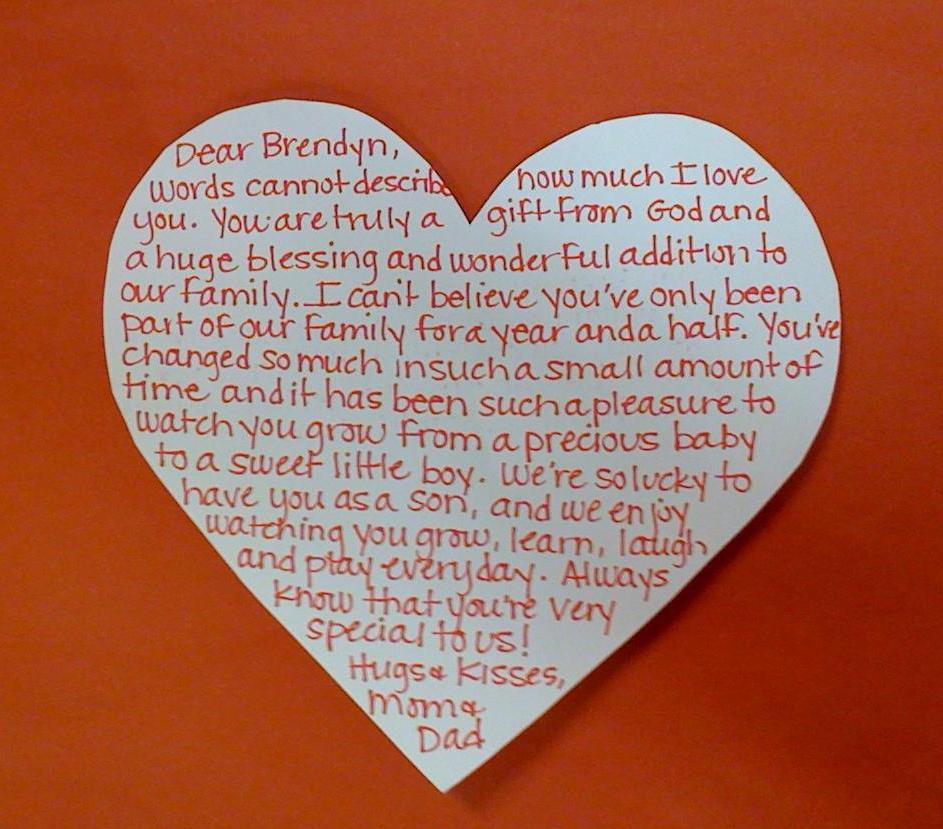 Dear Brendyn,
words cannot describe how much I love
you. You are truly a gift from God and
a huge blessing and wonderful addition to
our family. I can't believe you've only been
part of our family for a year and a half. You've
changed so much in such a small amount of
time and it has been such a pleasure to
watch you grow from a precious baby
to a sweet little boy. We're so lucky to
have you as a son, and we enjoy
watching you grow, learn, laugh
and play everyday. Always
know that you're very
special to us!
Hugs & Kisses,
Mom &
Dad